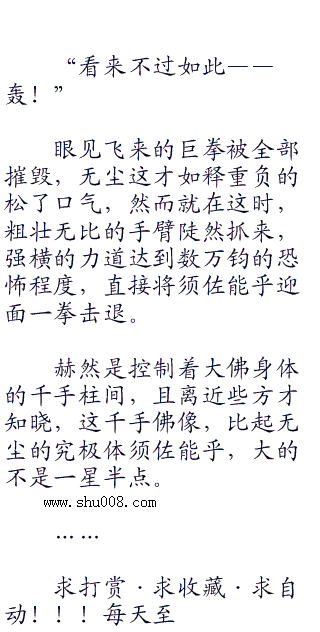 “看来不过如此——
轰！”
眼见飞来的巨拳被全部
摧毁，无尘这才如释重负的
松了口气，然而就在这时，
粗壮无比的手臂陡然抓来，
强横的力道达到数万钧的恐
怖程度，直接将须佐能乎迎
面一拳击退。
赫然是控制着大佛身体
的千手柱间，且离近些方才
知晓，这千手佛像，比起无
尘的究极体须佐能乎，大的
不是一星半点。
www.shu008.com
……
求打赏·求收藏·求自
动！！！每天至